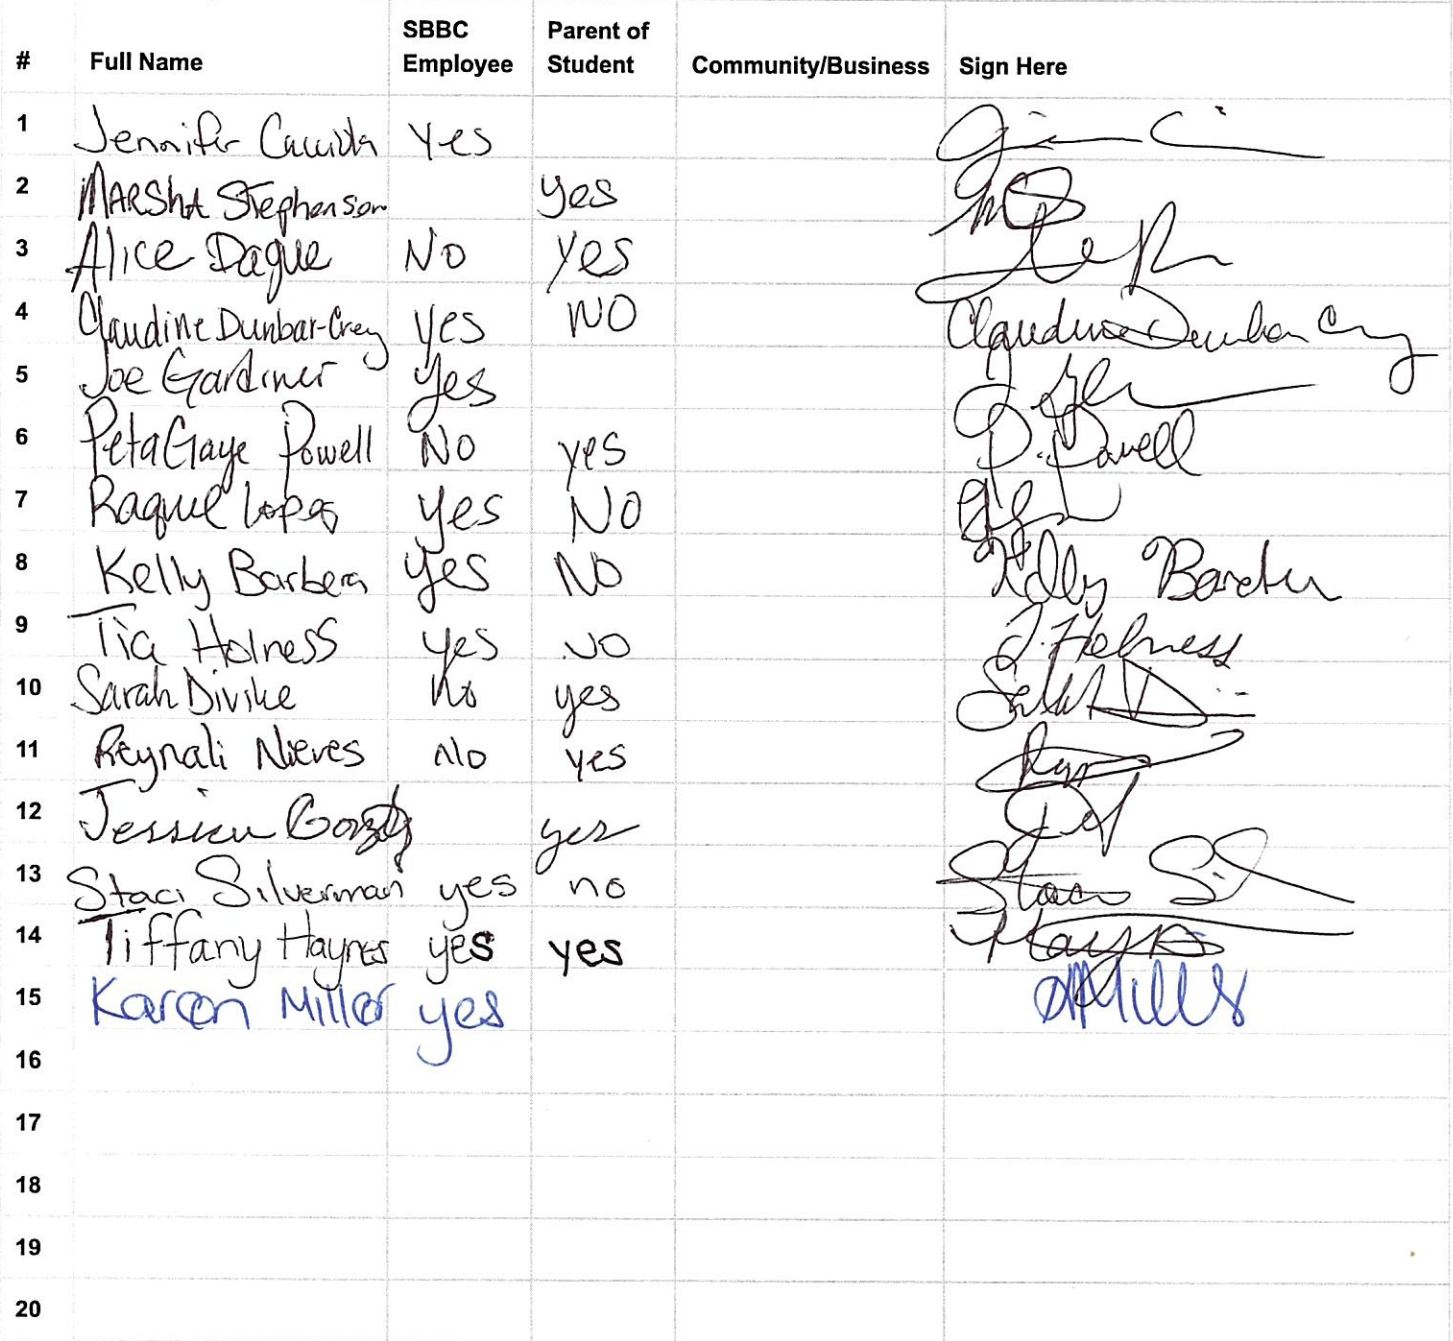 # Full Name SBBC Employee Parent of Student Community/Business Sign Here
1 Jennifer Yes
2 MARSHA Stephenson yes
3 Alice Dague No yes
4 Claudine Dunbar-Crey yes NO Claudine Dunbar
5 Joe Gardiner yes
6 PetaGaye Powell NO yes P. Powell
7 Raquel Lopes yes NO
8 Kelly Barbera yes NO Kelly
9 Tia Holness yes NO T. Holness
10 Sarah Divike no yes
11 Reynali Nieves No yes
12 Jessica yes
13 Staci Silverman yes no Staci
14 Tiffany Haynes yes yes
15 Kareen Miller yes
16
17
18
19
20